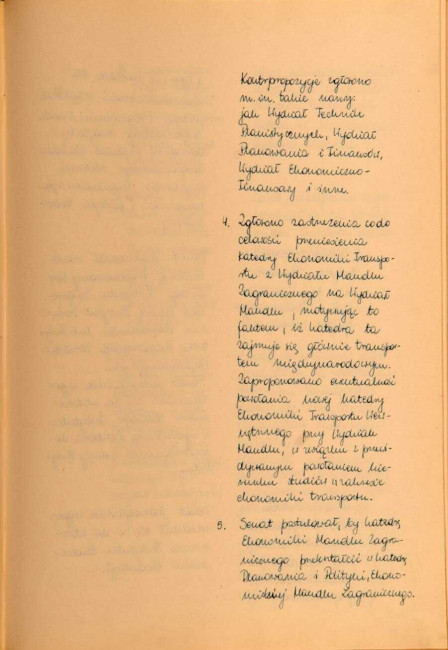 Kontrpropozycje zgłoszono
m.in. takie nazwy:
jak Wydział Technik
Planistycznych, Wydział
Planowania i Finansów,
Wydział Ekonomiczno-
Finansowy i inne.
4. Zgłoszono zastrzeżenia co do
celowości przeniesienia
Katedry Ekonomiki Transpo-
rtu z Wydziału Handlu
Zagranicznego na Wydział
Handlu, motywując to
faktem, iż katedra ta
zajmuje się głównie transpor-
tem międzynarodowym.
Zaproponowano ewentualność
powołania nowej katedry
Ekonomiki Transportu Wew-
nętrznego przy Wydziale
Handlu, w związku z przewi-
dywanym powołaniem kie-
runku studiów w zakresie
ekonomiki transportu.
5. Senat postulował, by katedrę
Ekonomiki Handlu Zagra-
nicznego przekształcić w katedrę
Planowania i Polityki Ekono-
micznej Handlu Zagranicznego.